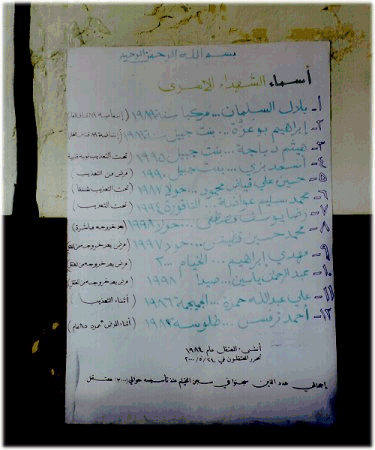 بسم الله الرحمن الرحيم
أسماء الشهداء الأسرى
١- بلال السلمان... مركبا
٢- إبراهيم بو عزة... بنت جبيل
٣- هيثم دباجة... بنت جبيل ١٩٩٥ (تحت التعذيب
٤- أسعد بزي... بنت جبيل ١٩٩٠ (مرض من التعذيب)
٥- حسين علي فياض محمود... حولا (تحت التعذيب
٦- محمد سليم عواضة... الناقورة ١٩٩٤ (تحت التعذيب)
٧- رضا يوسف مصطفى... حولا ١٩٩٨ (بعد خروجه مباشرة)
٨- محمد حسين قطيش... حولا ١٩٩٧ (مرض بعد خروجه من المعتقل
٩- مهدي إبراهيم... الخيام ٢٠٠٠ (مرض بعد خروجه من المعتقل
١٠- عبد الرحمن ياسين... صيدا ١٩٩٨ (مرض بعد خروجه من المعتقل
١١- علي عبد الله حمزة... الجميجمة ١٩٨٦ (أثناء التعذيب)
١٢- أحمد... طلوسة (أثناء
أنشئ المعتقل عام ١٩٨٤
تحرر المعتقلون في ٢٠٠٠/٥/٢٤
إجمالي عدد الذين سجنوا في سجن الخيام منذ تأسيسه حوالي معتقل